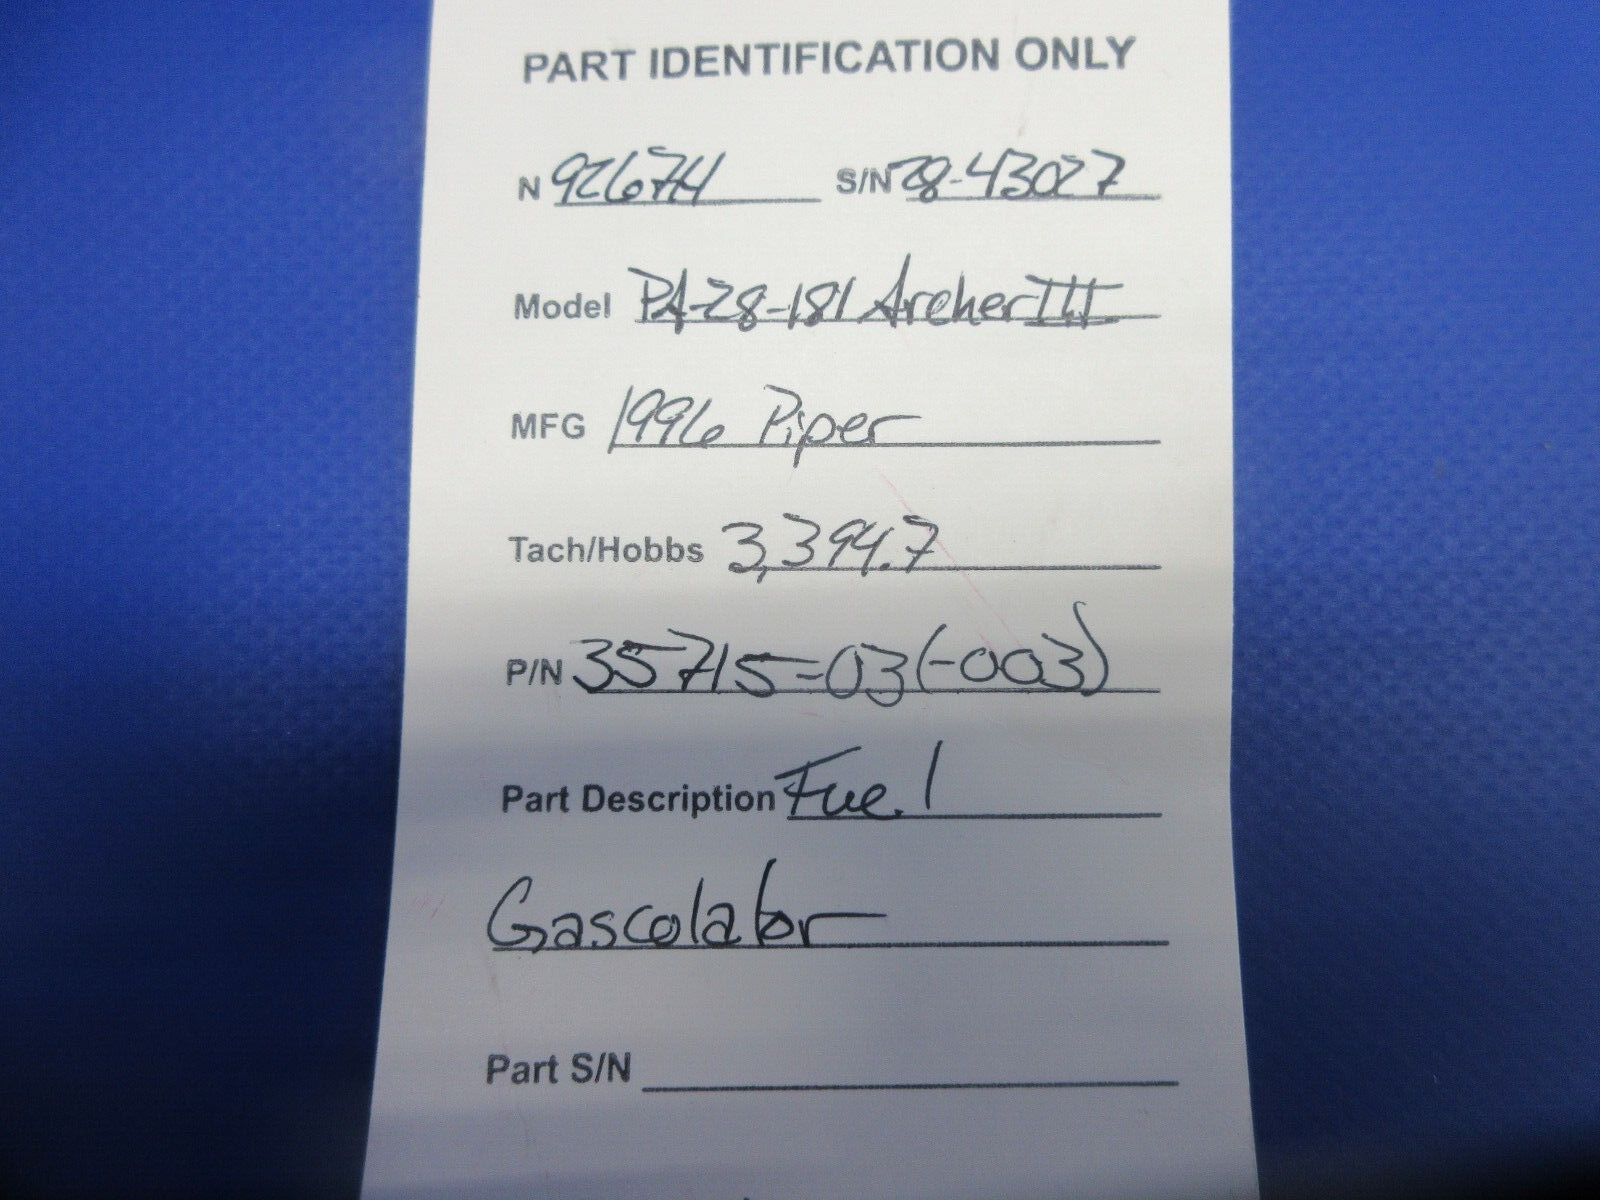 PART IDENTIFICATION ONLY
N 92674 S/N 28-43027
Model PA-28-181 Archer III
MFG 1996 Piper
Tach/Hobbs 3,394.7
P/N 35715-03 (-003)
Part Description Fuel
Gascolator
Part S/N